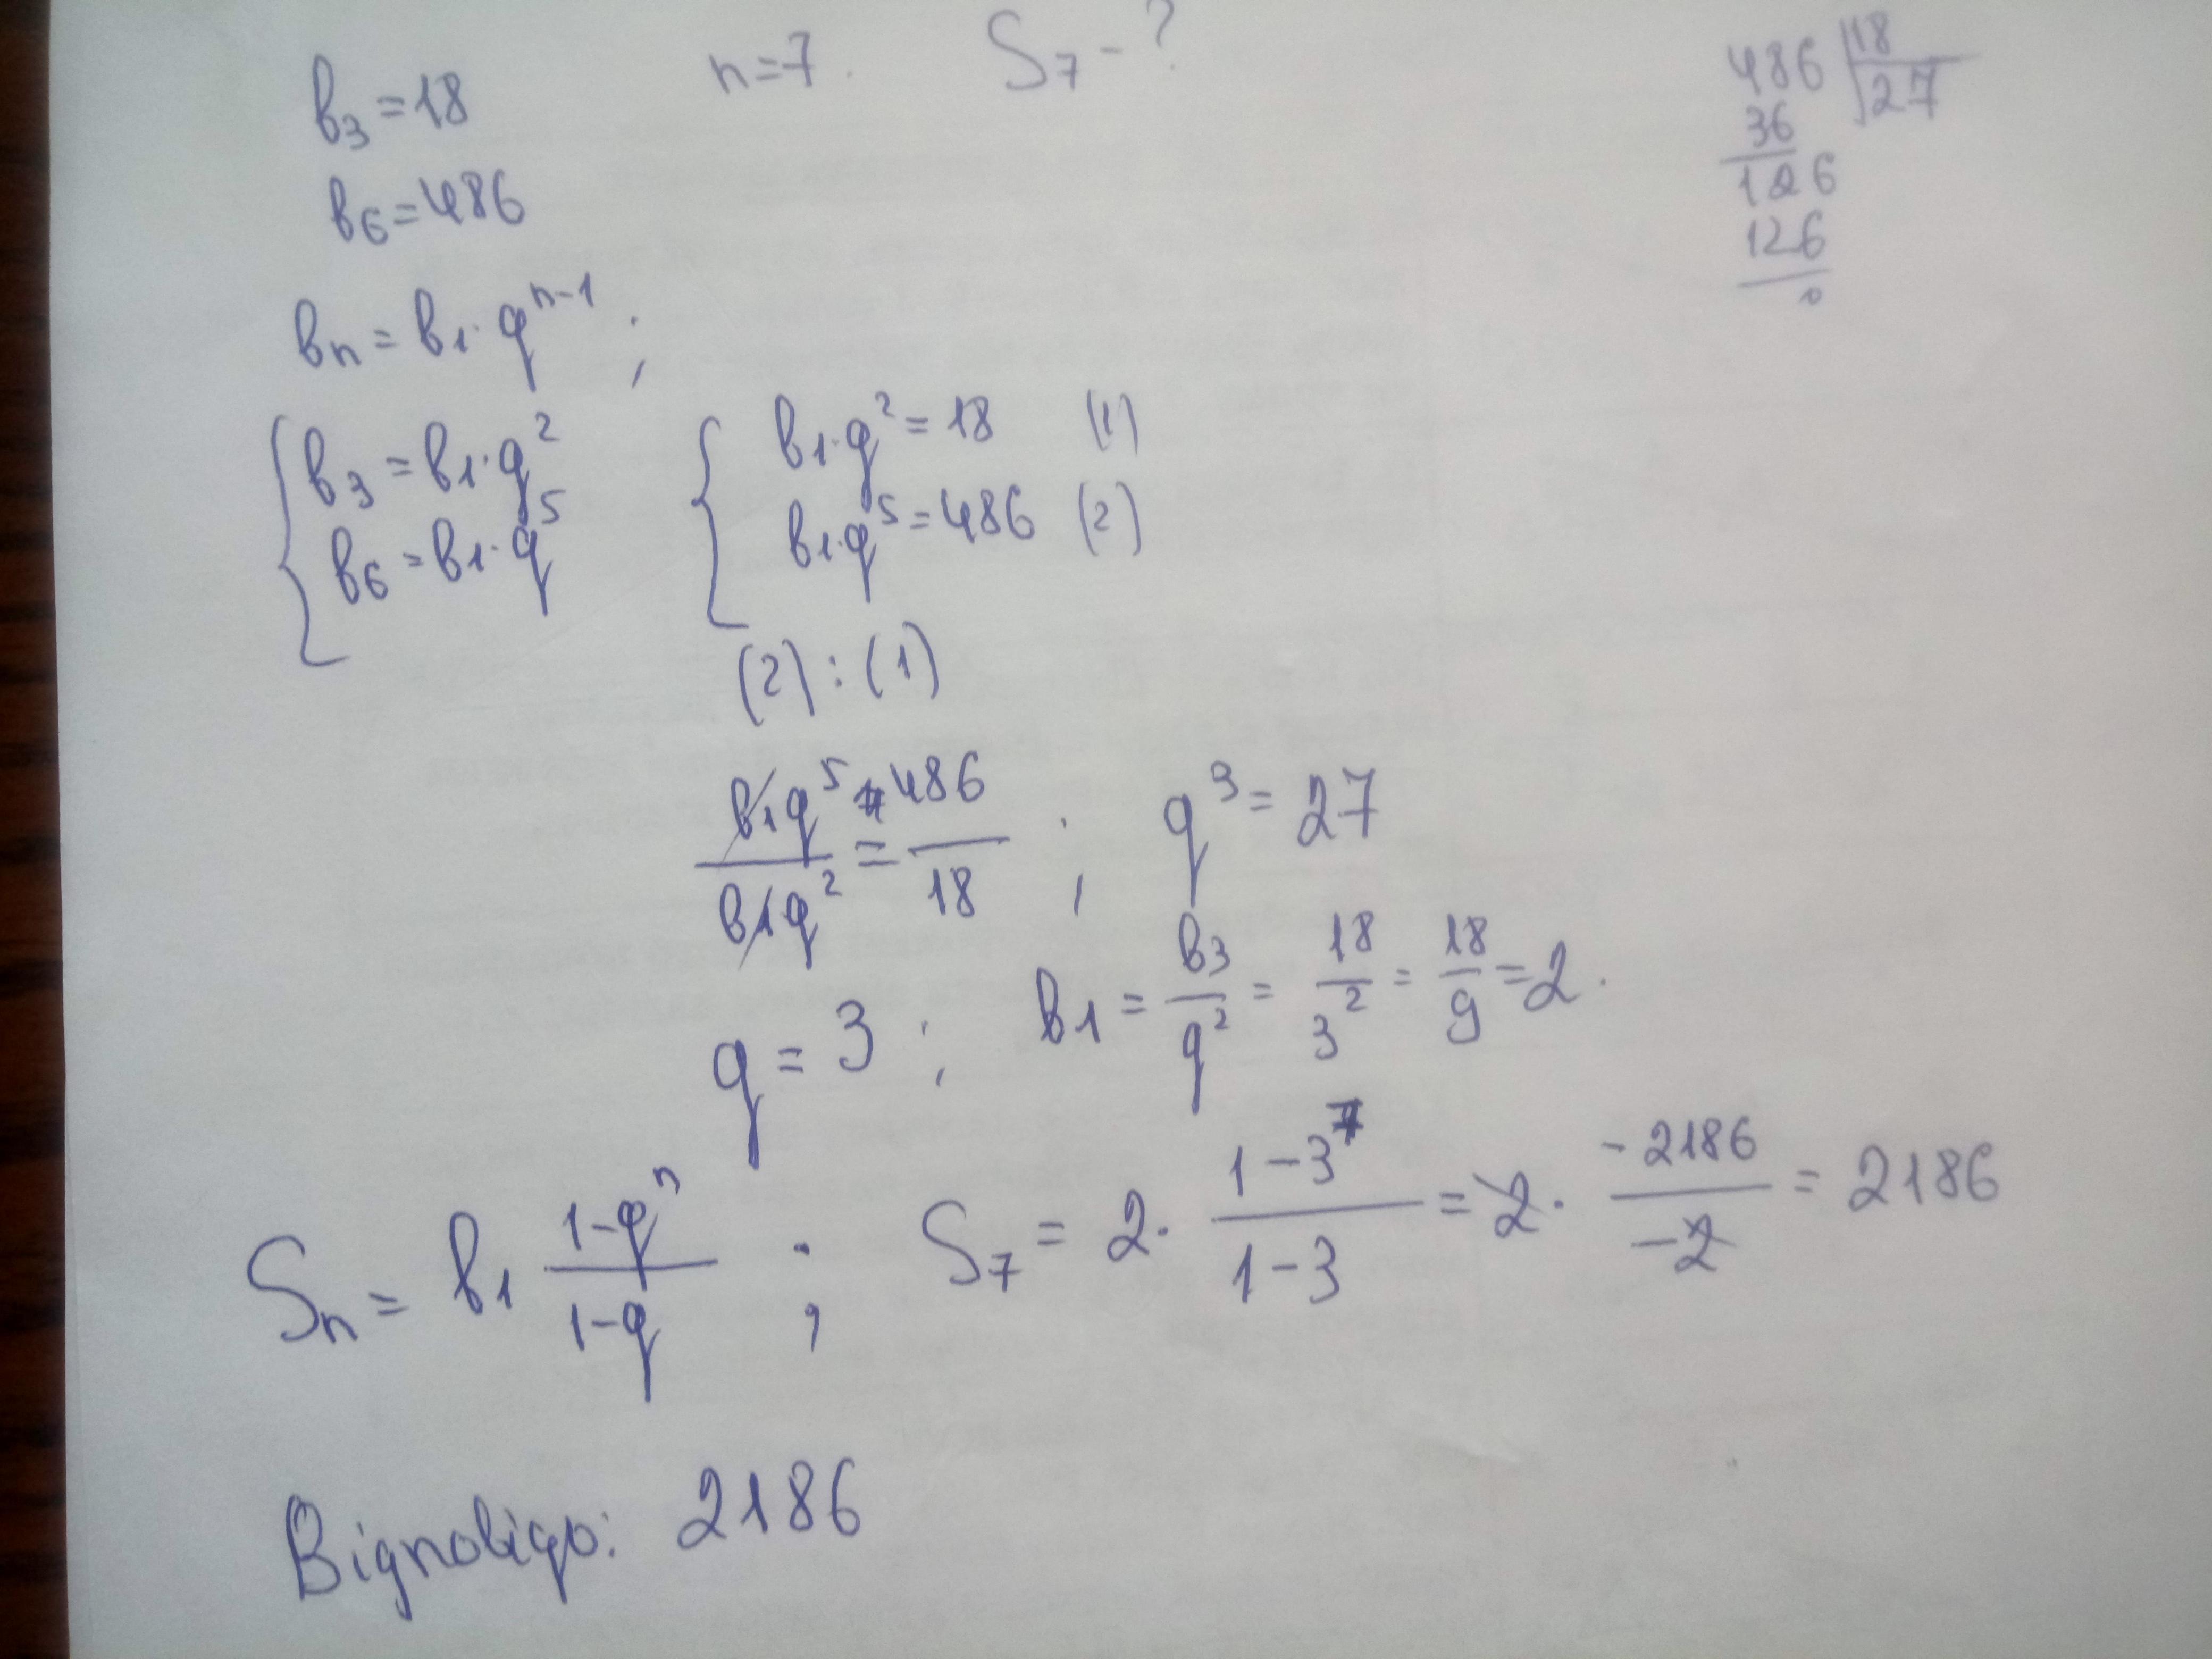 в₃ = 18    n = 7.    S₇ - ?
в₆ = 486
486 | 18
36    27
126
126
0
вₙ = в₁ · qⁿ⁻¹ ;
{ в₃ = в₁ · q²    { в₁ · q² = 18 (1)
в₆ = в₁ · q⁵    в₁ · q⁵ = 486 (2)
(2) : (1)
в₁q⁵ / в₁q² = 486 / 18 ; q³ = 27
q = 3 ; в₁ = в₃ / q² = 18 / 3² = 18 / 9 = 2.
Sₙ = в₁ (1-qⁿ) / (1-q) ; S₇ = 2 · (1-3⁷) / (1-3) = 2 · -2186 / -2 = 2186
Відповідь: 2186